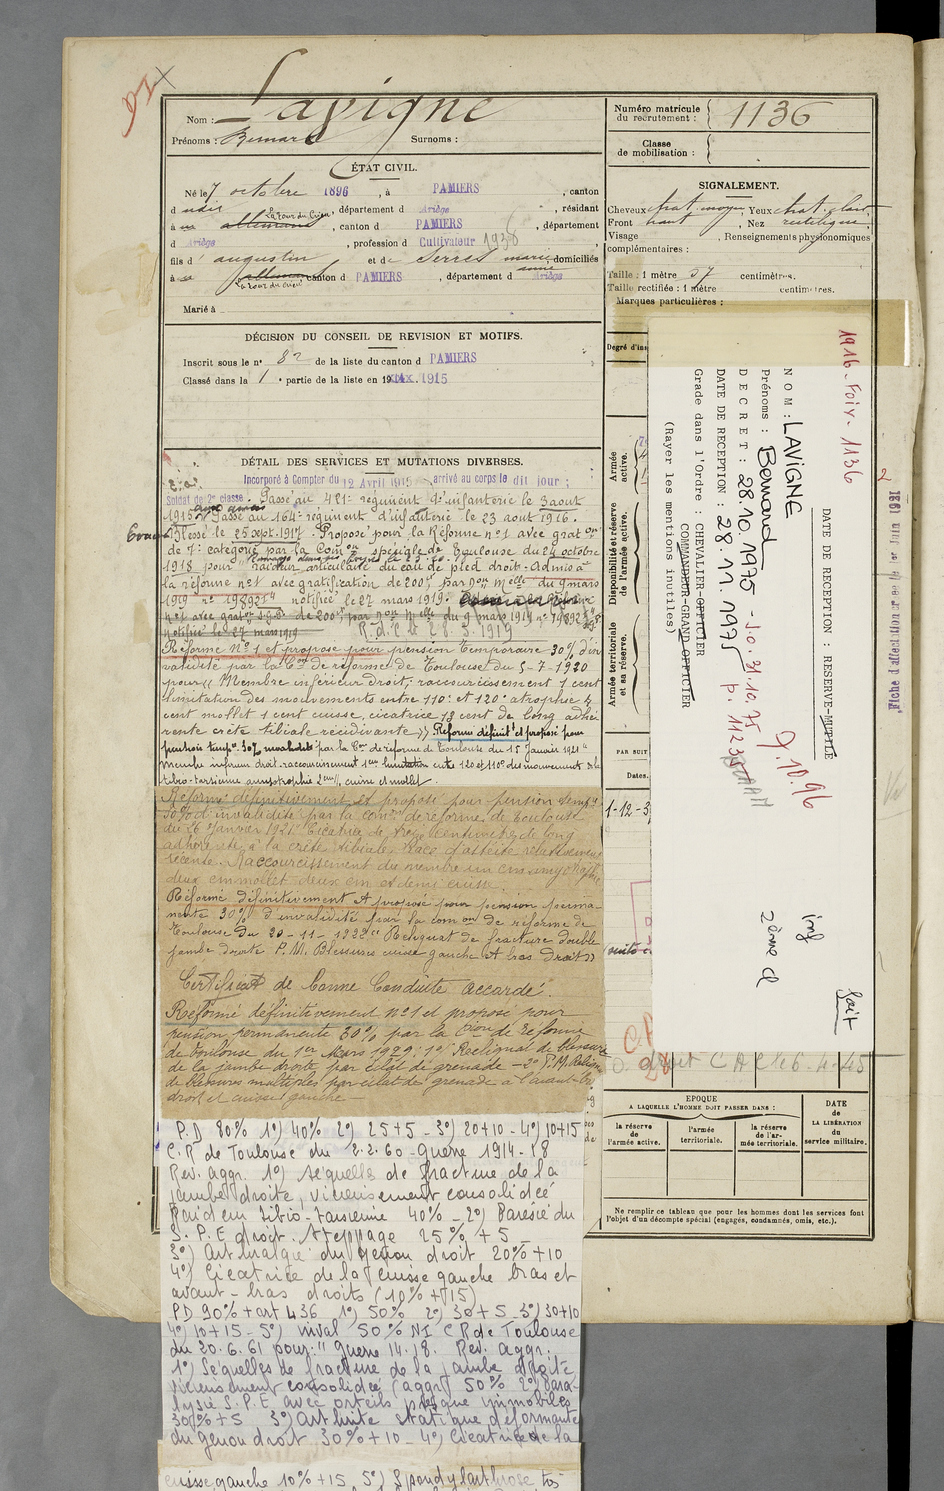 91
Nom : Lavigne
Prénoms : Bernard Surnoms :
ÉTAT CIVIL.
Né le 7 octobre 1896, à PAMIERS, canton
d udit, département d Ariège, résidant
à La Tour du Crieu, canton d PAMIERS, département
d Ariège, profession d Cultivateur 1938
fils d' augustin et de Serres marie anne, domiciliés
à La Tour du Crieu canton d PAMIERS, département d Ariège
Marié à
DÉCISION DU CONSEIL DE REVISION ET MOTIFS.
Inscrit sous le n° 82 de la liste du canton d PAMIERS
Classé dans la 1e partie de la liste en 1915
DÉTAIL DES SERVICES ET MUTATIONS DIVERSES.
Incorporé à Compter du 12 Avril 1915 arrivé au corps le dit jour ;
Soldat de 2e classe. Passé au 421e régiment d'infanterie le 3 aout
1915. Passé au 164e régiment d'infanterie le 23 aout 1916.
Blessé le 25 sept. 1917. Proposé pour la Réforme n°1 avec grat on
de 7e catégorie par la Com on spéciale de Toulouse du 24 octobre
1918 pour raideur articulaire du cou de pied droit. Admis à
la réforme n°1 avec gratification de 200f par D on M elle du 9 mars
1919 n° 19892 I 4 notifiée le 27 mars 1919.
notifiée le 27 mars 1919 R.d.C. le 28.3.1919
Réformé N°1 et proposé pour pension temporaire 30% d'in
validité par la C on de réforme de Toulouse du 5-7-1920
pour "Membre inférieur droit, raccourcissement 1 cent
limitation des mouvements entre 110° et 120° atrophie 4
cent mollet 1 cent cuisse, cicatrice 13 cent de long adhé
rente crête tibiale récidivante" Réformé définit t et proposé pour
pension temp re 30% invalidité par la C on de réforme de Toulouse du 15 Janvier 1921 "
Membre inférieur droit. raccourcissement 1 cm limitation entre 120 et 110° des mouvements de la
tibio-tarsienne amyotrophie 2 cm ½, cuisse et mollet.
Réformé définitivement et proposé pour pension temp re
30% d'invalidité par la com on de réforme de Toulouse
du 26 Janvier 1921 "Cicatrice de treize centimètres de long
adhérente à la crête tibiale. Trace d'ostéite relativement
récente. Raccourcissement du membre un cm amyotrophie
deux cm mollet deux cm et demi cuisse.
Réformé définitivement et proposé pour pension perma-
nente 30% d'invalidité par la com on de réforme de
Toulouse du 20-11-1922 " Reliquat de fracture double
jambe droite P.M. Blessures cuisse gauche et bras droit"
Certificat de Bonne Conduite accordé.
Réformé définitivement n°1 et proposé pour
pension permanente 30% par la C on de réforme
de Toulouse du 1er Mars 1929: 1°) Reliquat de blessure
de la jambe droite par éclat de grenade - 2° P.M. Reliquat
de blessures multiples par éclat de grenade à l'avant-bras
droit et cuisse gauche -
P.D 80% 1°) 40% 2°) 25+5 - 3°) 20+10 - 4°) 10+15
C.R de Toulouse du 2.2.60 - Guerre 1914-18
Rev. aggr. 1°) séquelles de fracture de la
jambe droite, vicieusement consolidée
Raideur tibio-tarsienne 40% - 2°) Parésie du
S.P.E droit. Steppage 25% + 5
3°) Arthralgie du genou droit 20% + 10
4°) Cicatrice de la cuisse gauche bras et
avant-bras droits (10% + 15)
PD 90% + art L 36 1°) 50% 2°) 30+5 - 3°) 30+10
4°) 10+15 - 5°) inval 50% NI C R de Toulouse
du 20.6.61 pour : " guerre 14.18. Rev. aggr.
1°) Séquelles de fracture de la jambe droite
vicieusement consolidée (aggr) 50% 2°) Para-
lysie S.P.E avec orteils presque immobiles
30% + 5 3°) Arthrite statique déformante
du genou droit 30% + 10 - 4°) Cicatrice de la
cuisse gauche 10% + 15 5°) Spondylarthrose
Numéro matricule du recrutement : 1136
Classe de mobilisation :
SIGNALEMENT.
Cheveux chat. moyen Yeux chat. clair
Front haut, Nez rectiligne
Visage, Renseignements physionomiques
complémentaires :
Taille : 1 mètre 57 centimètres.
Taille rectifiée : 1 mètre centimètres.
Marques particulières :
Degré d'ins
Armée active.
Disponibilité et réserve de l'armée active.
Armée territoriale et sa réserve.
PAR SUIT
Dates.
1-12-3
1916 - Foix - 1136
DATE DE RECEPTION : RESERVE-MUTILE
9.10.96
NOM : LAVIGNE
Prénoms : Bernard
DECRET : 28.10.1975 - J.O. 31.10.75 p. 11235
DATE DE RECEPTION : 28.11.1975
Grade dans l'Ordre : CHEVALIER-OFFICIER
COMMANDEUR-GRAND OFFICIER
(Rayer les mentions inutiles)
inf
2ème cl
fait
droit C A C le 6-4-45
EPOQUE
A LAQUELLE L'HOMME DOIT PASSER DANS :
la réserve de l'armée active.
l'armée territoriale.
la réserve de l'armée territoriale.
DATE DE LA LIBÉRATION du service militaire.
Ne remplir ce tableau que pour les hommes dont les services font
l'objet d'un décompte spécial (engagés, condamnés, omis, etc.).